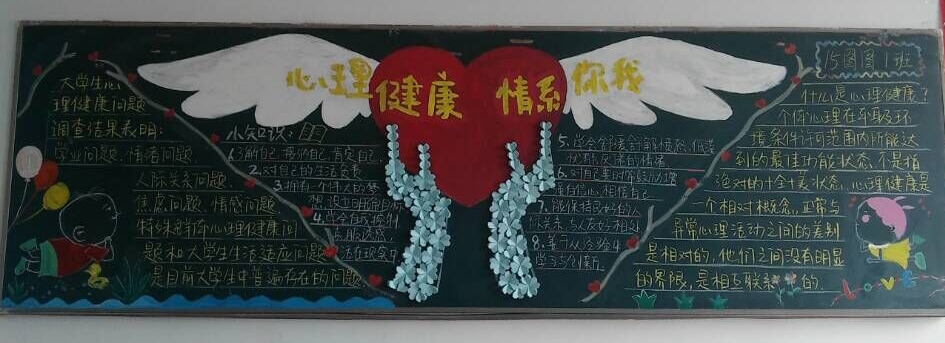 心理健康 情系你我
15图图1班
大学生心
理健康问题
调查结果表明:
学业问题、情绪问题
人际关系问题、
焦虑问题、情感问题、
特殊群体心理健康问
题和大学生生活适应问题
是目前大学生中普遍存在的问题
小知识:
1.了解自己,接纳自己,肯定自己
2.对自己的生活负责
3.拥有一个伟大的梦
想
4.学会自
5.学会
的情绪
6.对自己要
自信心,相信自己
7.能保持良好的人
际关系,与人友好相处
8.善于从经验中
学习与创新
什么是心理健康?
个体心理在本身及环
境条件许可范围内所能达
到的最佳功能状态,不是指
绝对的十全十美状态,心理健康是
一个相对概念,正常与
异常心理活动之间的差别
是相对的,他们之间没有明显
的界限,是相互联系的